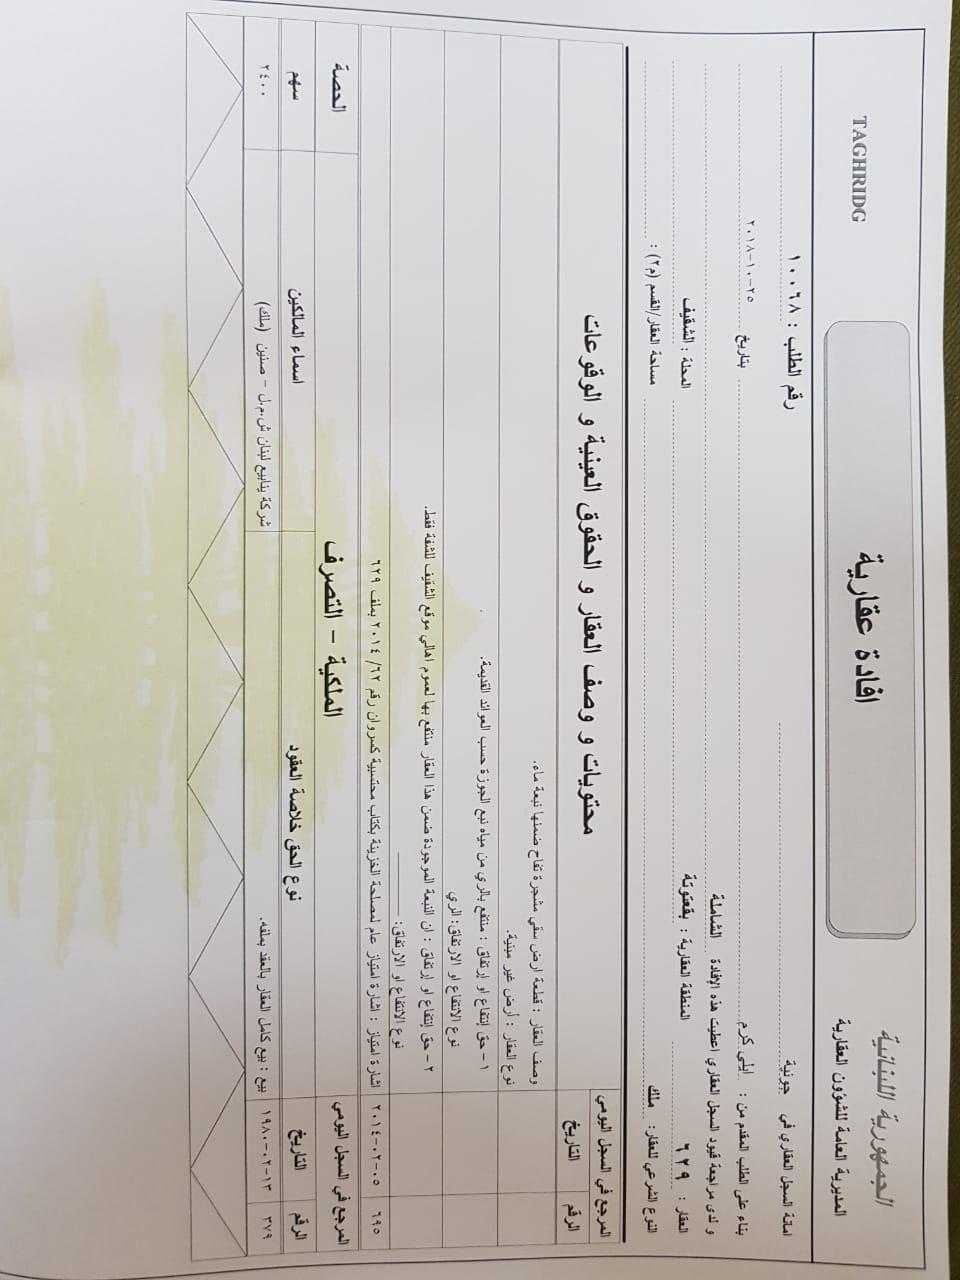 الجمهورية اللبنانية
المديرية العامة للشؤون العقارية
افادة عقارية
TAGHRIDG
امانة السجل العقاري في جونية
رقم الطلب : ١٠٠٦٨
بناء على الطلب المقدم من : ايلي كرم بتاريخ ٢٠١٨-١٠-٢٥
و لدى مراجعة قيود السجل العقاري اعطيت هذه الإفادة الشاملة
العقار : ٦٢٩ المنطقة العقارية : بقعتوتة المحلة : الشقيف
النوع الشرعي للعقار: ملك مساحة العقار/القسم (م٢) :
المرجع في السجل اليومي محتويات و وصف العقار و الحقوق العينية و الوقوعات
الرقم التاريخ
وصف العقار : قطعة ارض سقي مشجرة تفاح ضمنها نبعة ماء.
نوع العقار : أرض غير مبنية.
١- حق إنتفاع او إرتفاق : منتفع بالري من مياه نبع الجوزة حسب العوائد القديمة.
نوع الانتفاع او الارتفاق: الري
٢- حق إنتفاع او إرتفاق : ان النبعة الموجودة ضمن هذا العقار منتفع بها لعموم اهالي موقع الشقيف للشفة فقط.
نوع الانتفاع او الارتفاق:
٦٩٥ ٢٠١٤-٠٢-٠٥ اشارة امتياز : اشارة امتياز عام لمصلحة الخزينة بكتاب محتسبية كسروان رقم ٦٢/ ٢٠١٤ بملف ٦٢٩
المرجع في السجل اليومي الملكية - التصرف الحصة
الرقم التاريخ نوع الحق خلاصة العقود اسماء المالكين سهم
٣٧٩ ١٩٨٠-٠٢-١٣ بيع : بيع كامل العقار بالعقد بملفه. شركة ينابيع لبنان ش.م.ل - صنين (ملك) ٢٤٠٠